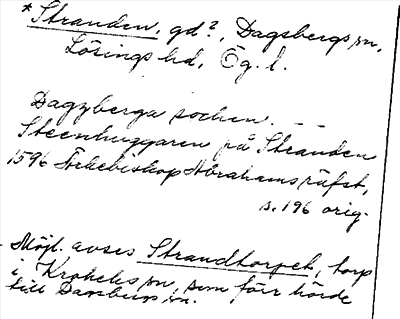 *Stranden, gd?, Dagsbergs sn,
Lösings hd, Ög. l.
Dagzberga sochen. – –
Steenhuggaren på Stranden
1596 Ärkebiskop Abrahams räfst,
s. 196 orig.
Möjl. avses Strandtorpet, torp
i Krokeks sn, som förr hörde
till Dagsbergs sn.